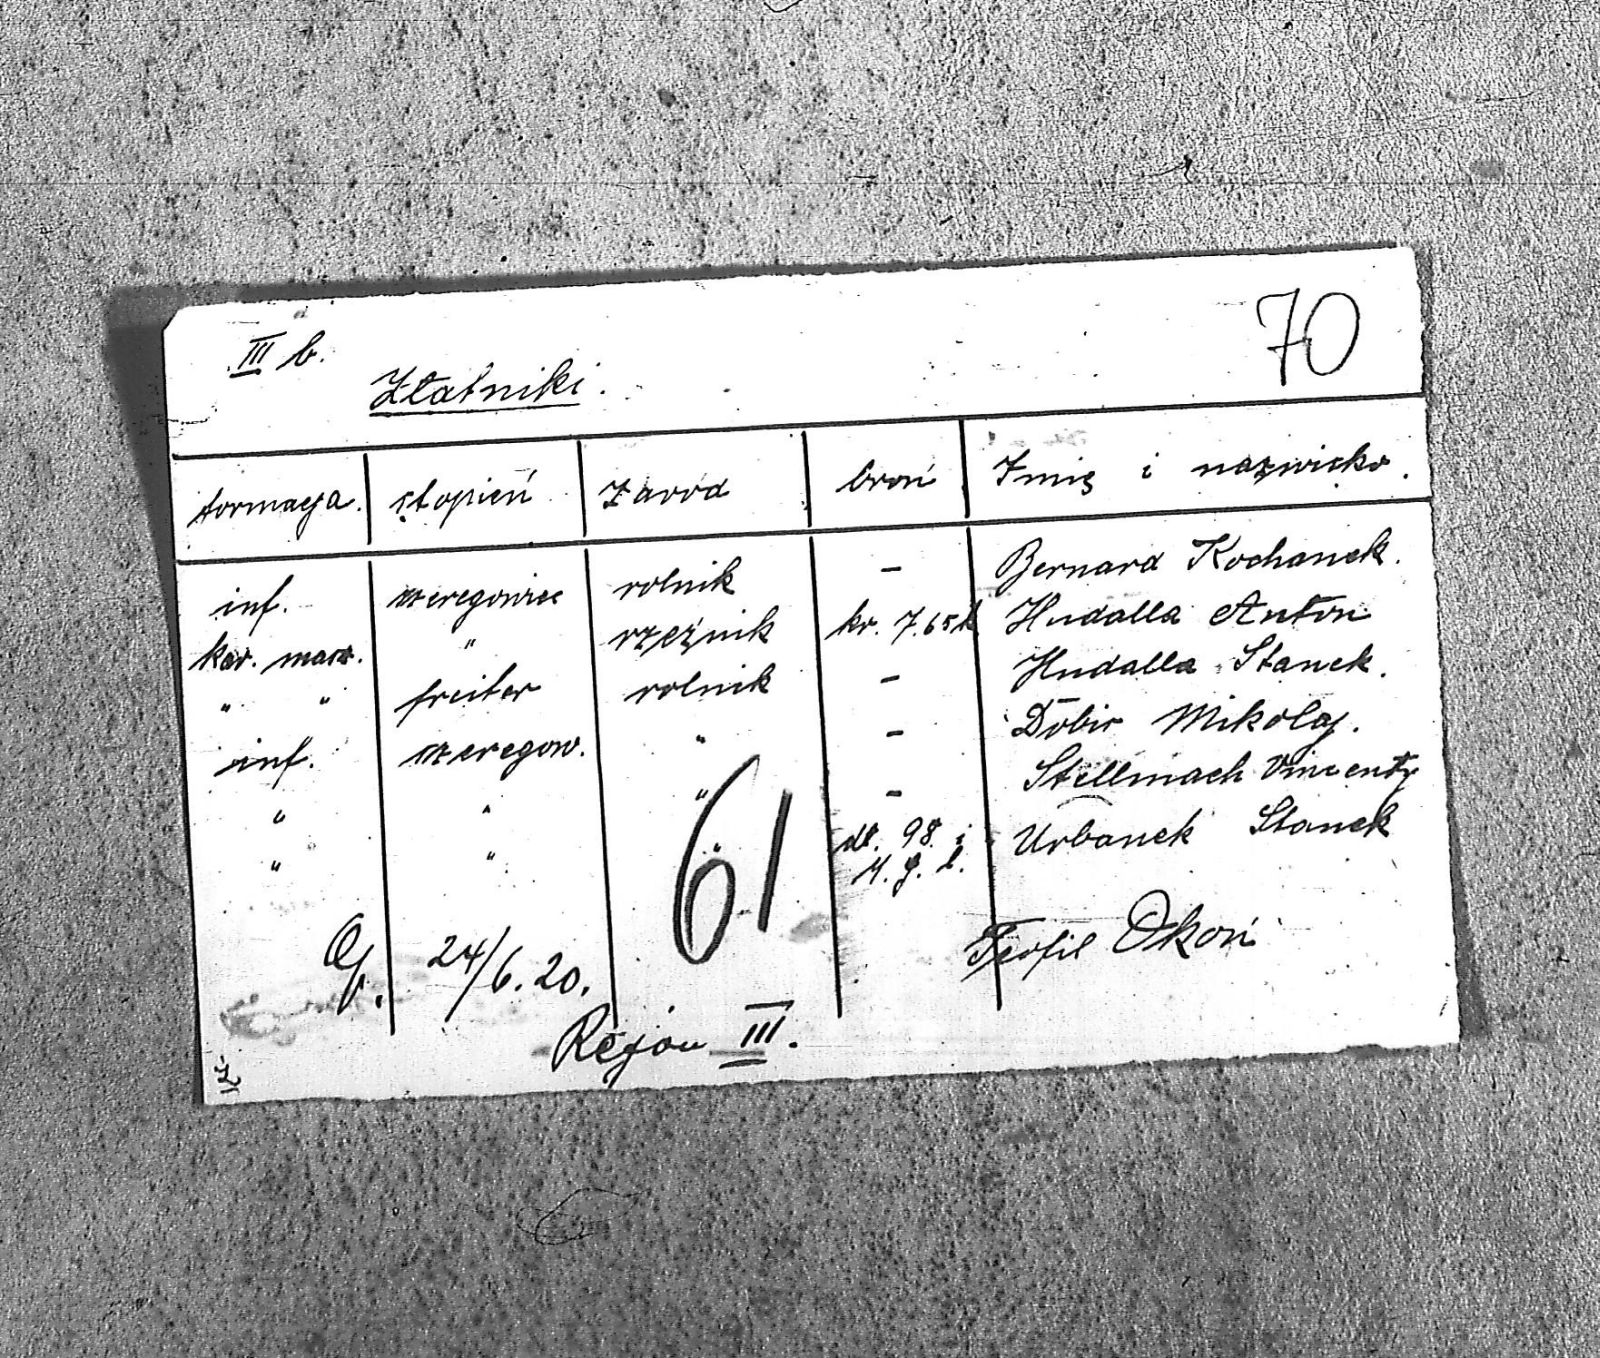 70
III b.
Złatniki.
formacja. stopień zawód broń Imię i nazwisko.
inf. szeregowiec rolnik – Bernard Kochanek.
kar. masz. " rzeźnik kr. 7.65 Hudalla Anton
" " freiter rolnik – Hudalla Stanek.
inf. szeregow. " – Dobis Mikołaj.
" " " – Stellmach Vincenty
" " " dł. 98. i Urbanek Stanek
M. g. l.
61
O/. 24/6.20. Teofil Okoń
Rejon III.